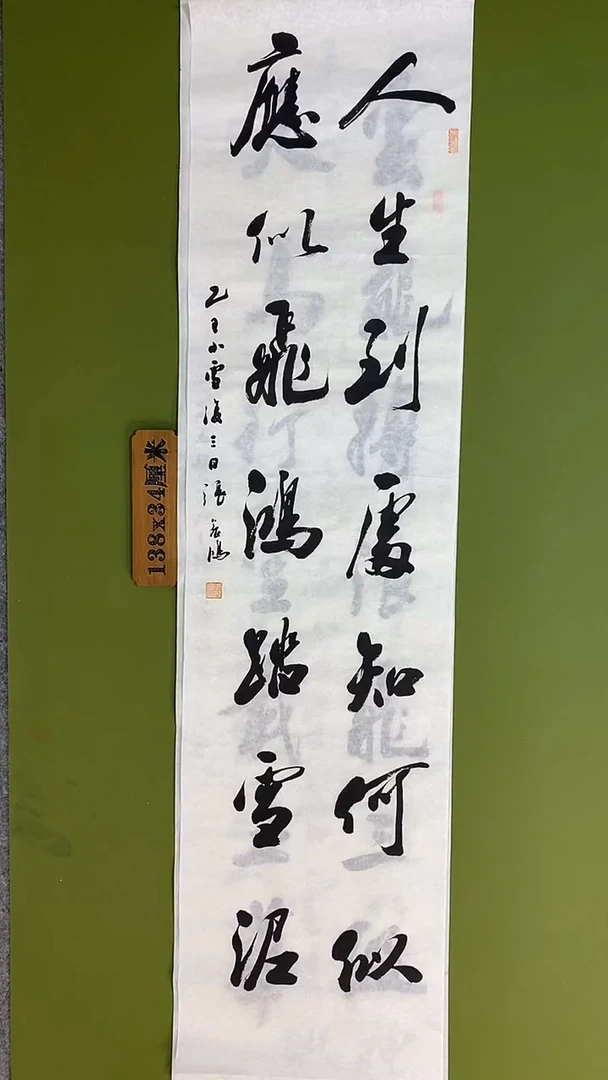 人生到處知何似
應似飛鴻踏雪泥
小雪後三日張
138x34厘米